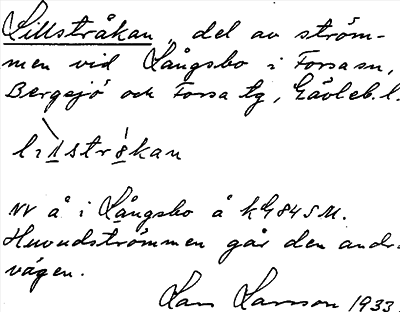 Lillstråkan, del av ström-
men vid Långsbo i Forsa sn,
Bergsjö och Forsa tg, Gävleb. l.
NV å i Långsbo å kg 84 SM.
Huvudströmmen går den andra
vägen.
Lars Larsson 1933.